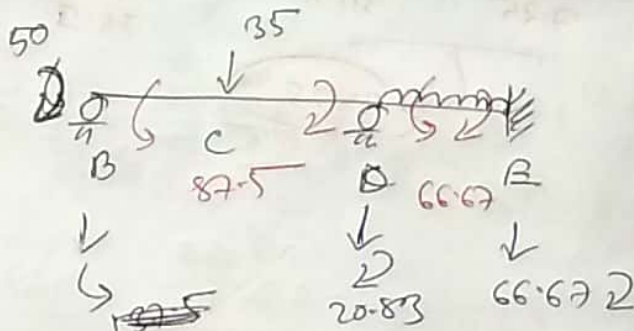 50 35
B C
87.5 D 66.67 E
20.83 66.67